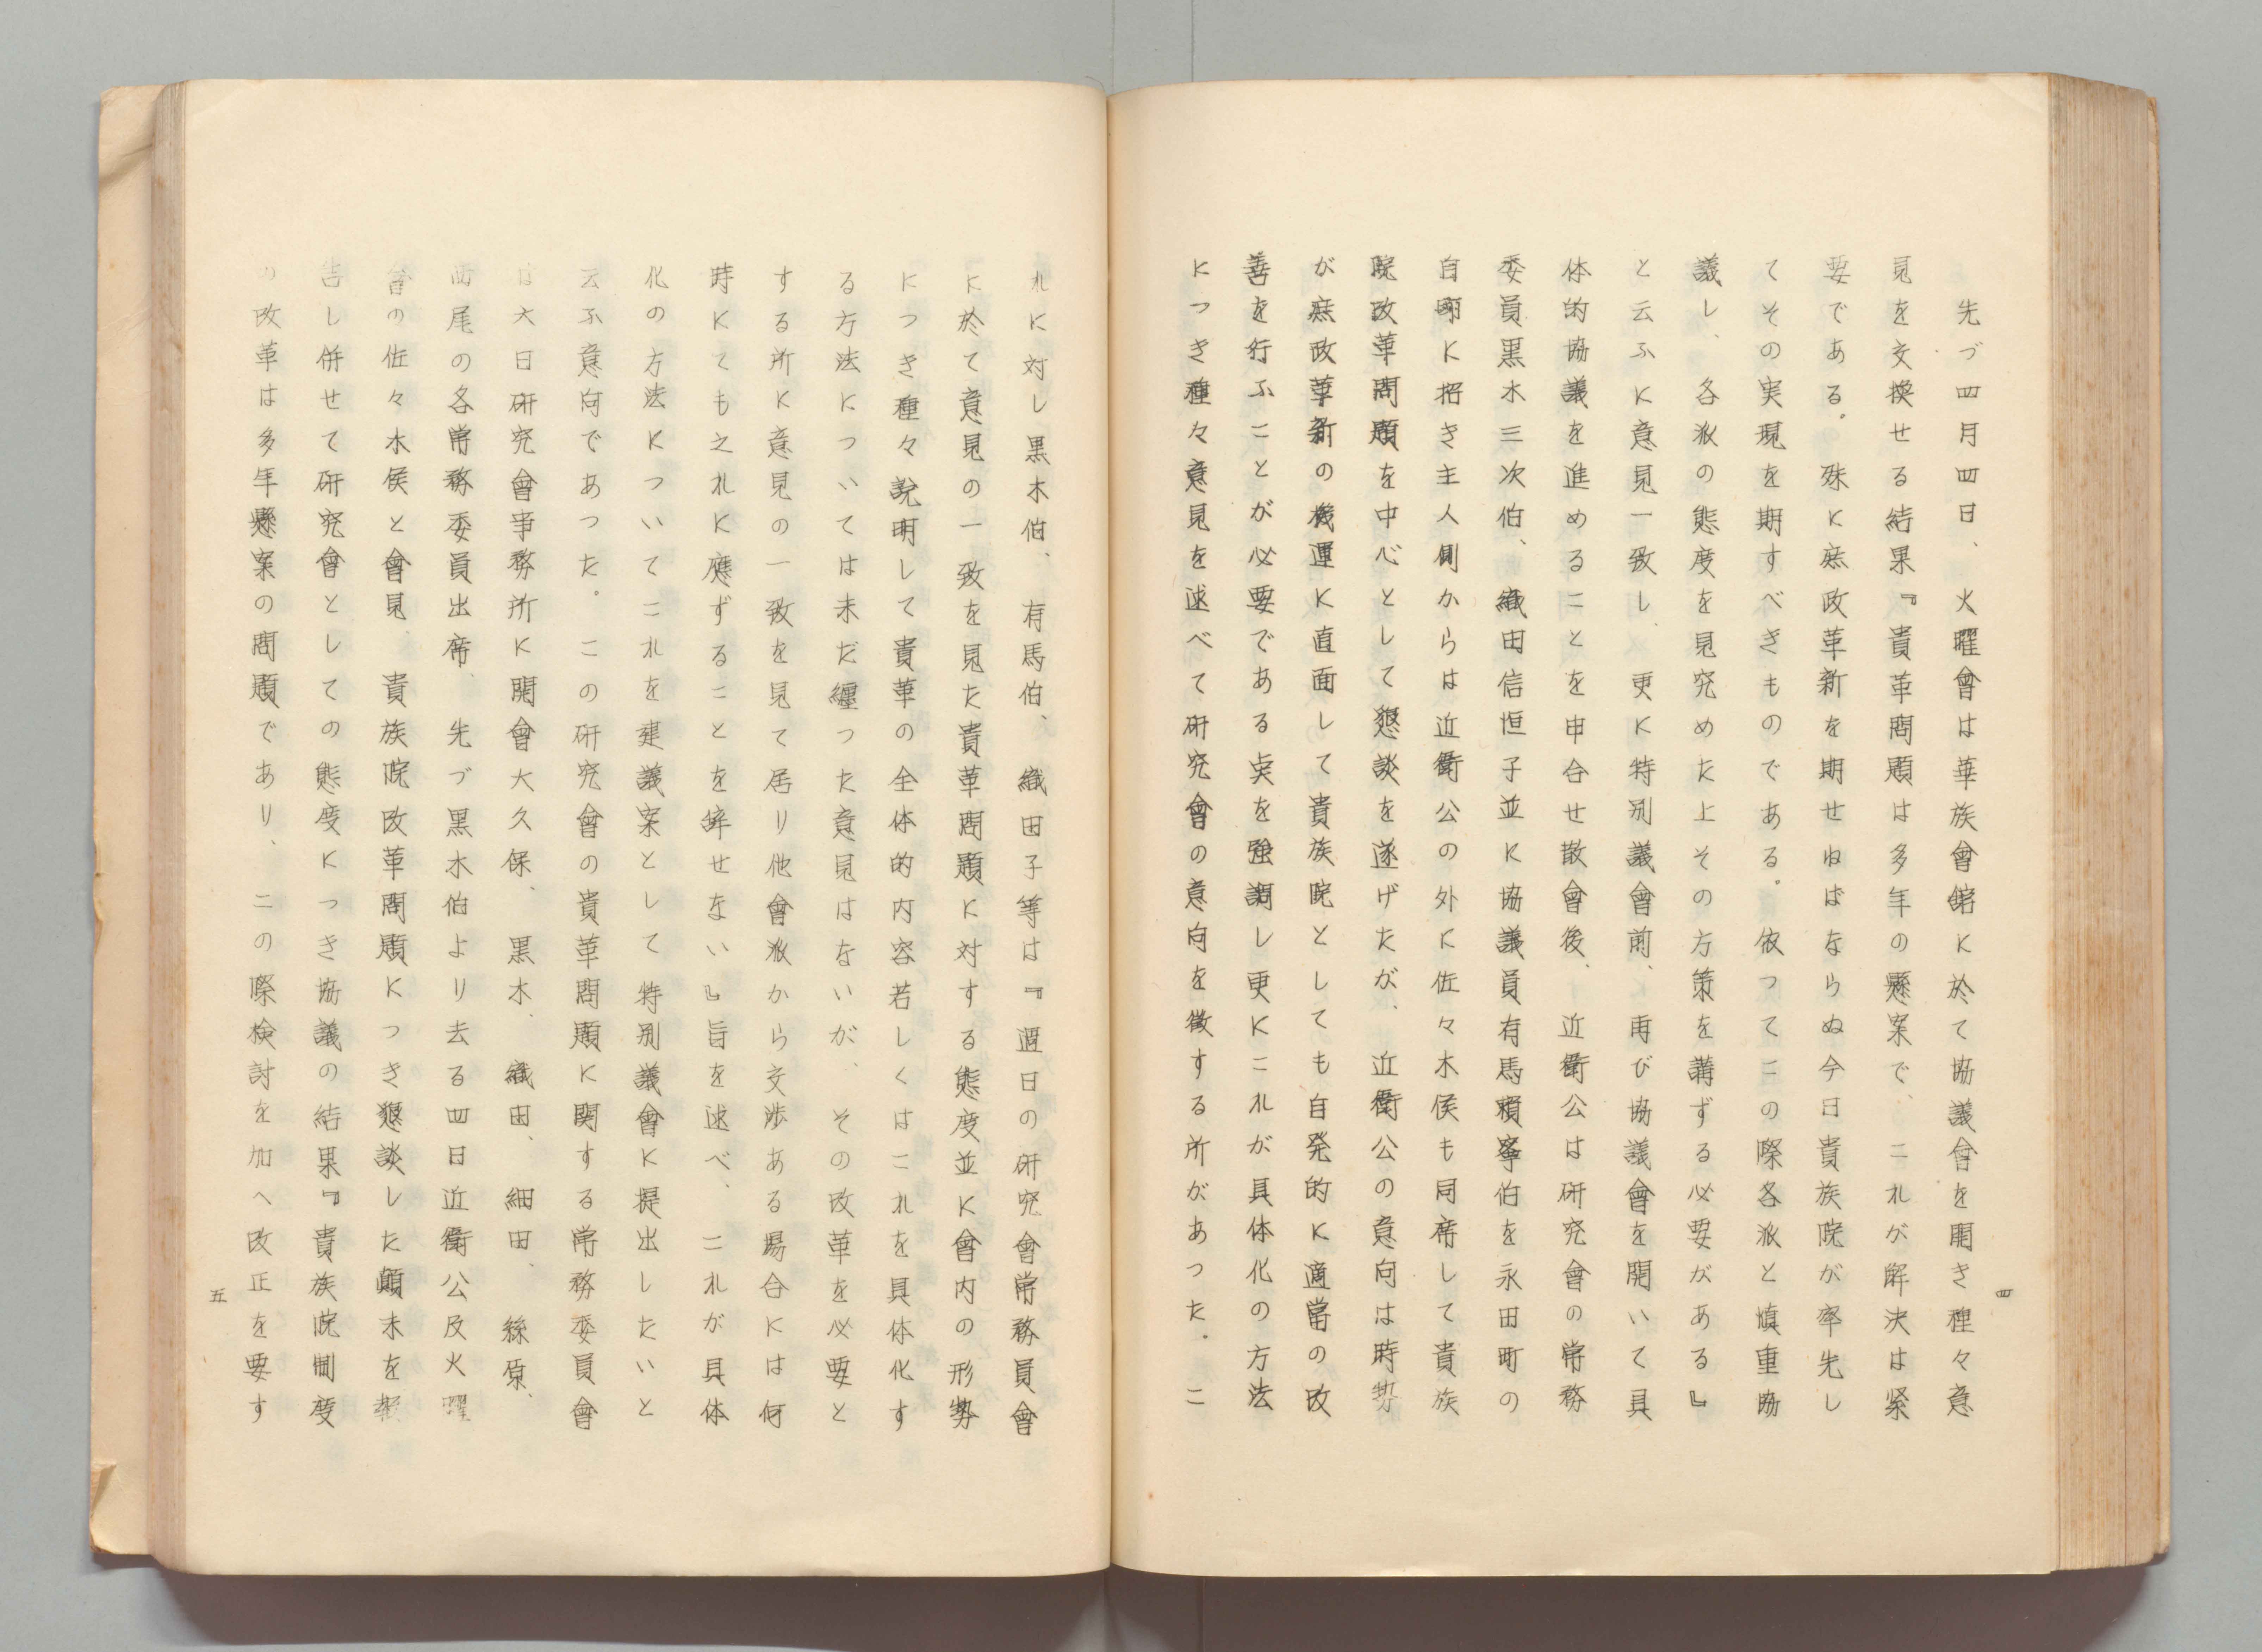 先づ四月四日、火曜會は華族會館に於て協議會を開き種々意
見を交換せる結果『貴革問題は多年の懸案で、これが解決は緊
要である。殊に庶政革新を期せねばならぬ今日貴族院が率先し
てその実現を期すべきものである。依つてこの際各派と慎重協
議し、各派の態度を見究めた上その方策を講ずる必要がある』
と云ふに意見一致し、更に特別議會前、再び協議會を開いて具
体的協議を進めることを申合せ散會後、近衛公は研究會の常務
委員黒木三次伯、織田信恒子並に協議員有馬頼寧伯を永田町の
自邸に招き主人側からは近衛公の外に佐々木侯も同席して貴族
院改革問題を中心として懇談を遂げたが、近衛公の意向は時勢
が庶政革新の機運に直面して貴族院としても自発的に適當の改
善を行ふことが必要である点を強調し更にこれが具体化の方法
につき種々意見を述べて研究會の意向を徴する所があつた。こ
四
れに対し黒木伯、有馬伯、織田子等は『過日の研究會常務員會
に於て意見の一致を見た貴革問題に対する態度並に會内の形勢
につき種々説明して貴革の全体的内容若しくはこれを具体化す
る方法については未だ纏つた意見はないが、その改革を必要と
する所に意見の一致を見て居り他會派から交渉ある場合には何
時にても之れに應ずることを辞せない』旨を述べ、これが具体
化の方法についてこれを建議案として特別議會に提出したいと
云ふ意向であつた。この研究會の貴革問題に関する常務委員會
は六日研究會事務所に開會大久保、黒木、織田、細田、絲原、
西尾の各常務委員出席、先づ黒木伯より去る四日近衛公及火曜
會の佐々木侯と會見、貴族院改革問題につき懇談した顛末を報
告し併せて研究會としての態度につき協議の結果『貴族院制度
の改革は多年懸案の問題であり、この際検討を加へ改正を要す
五